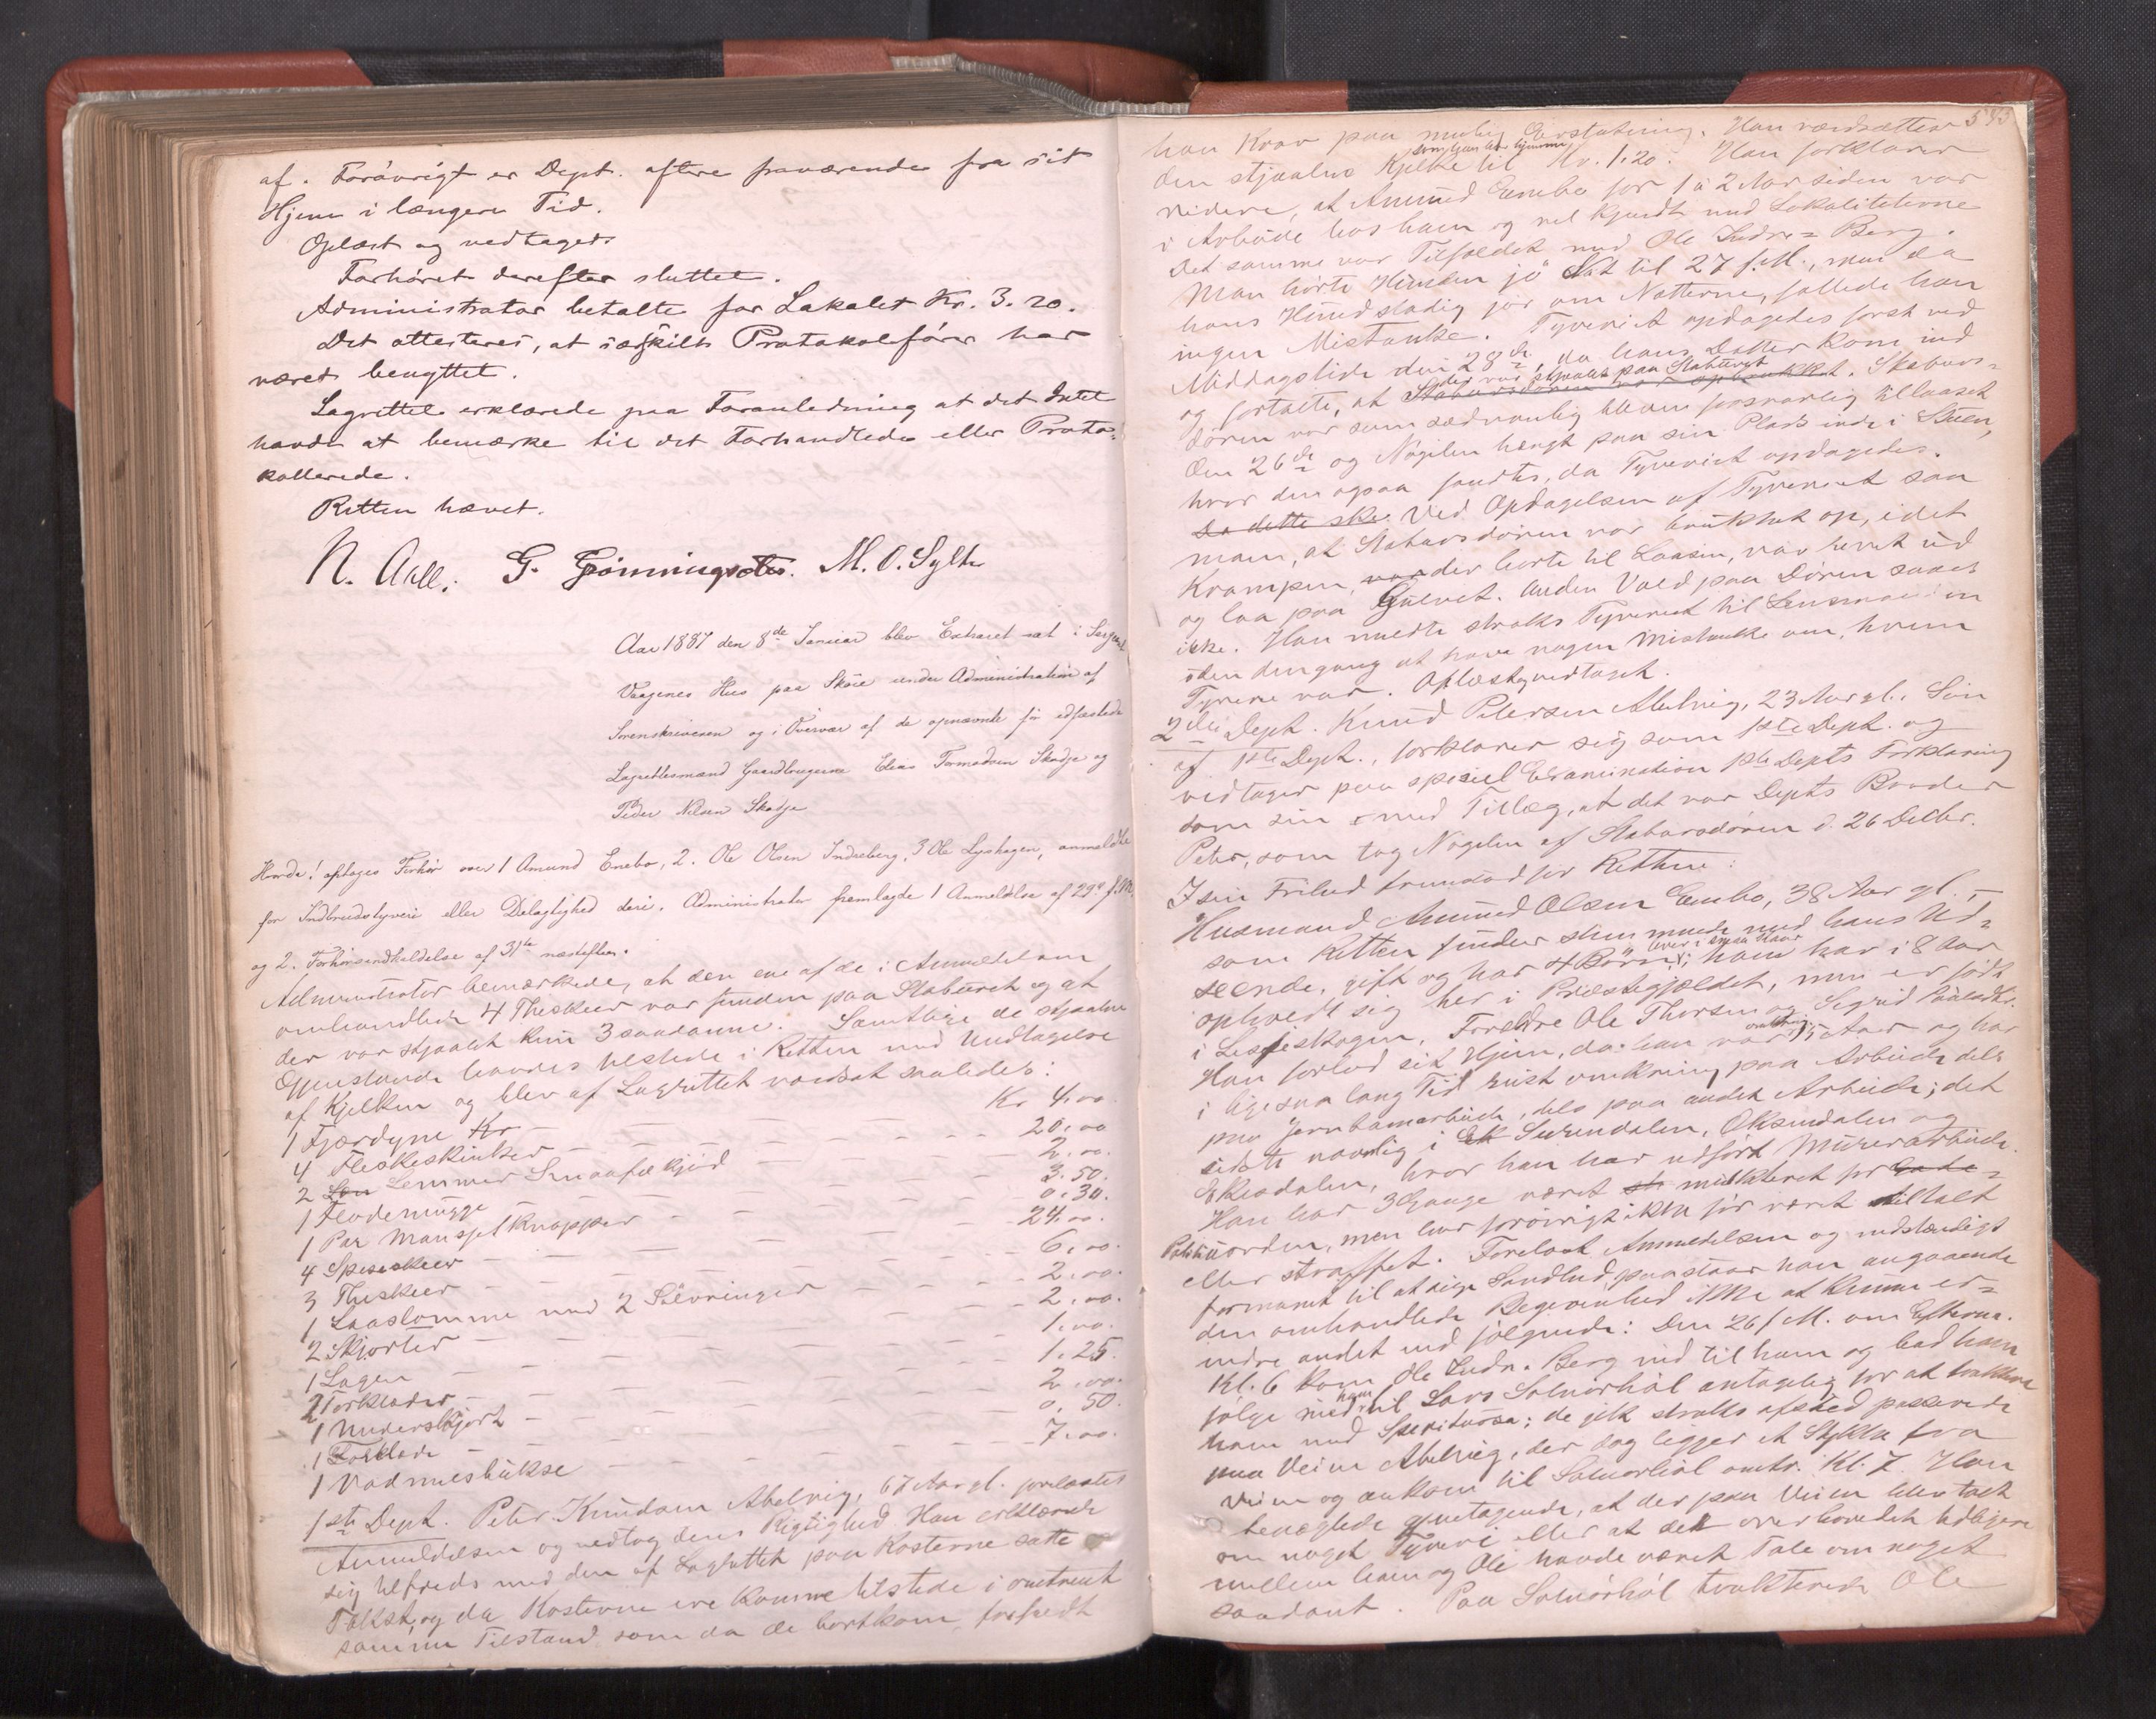 af. Forøvrigt er Dept. oftere fraværende fra sit
Hjem i længere Tid.
Oplæst og vedtaget.
Forhøret derefter sluttet.
Administrator betalte for Lokalet Kr. 3.20.
Det attesteres, at særskilt Protokolfører har
været benyttet.
Lagrettet erklærede paa Foranledning at det Intet
havde at bemærke til det Forhandlede eller Proto-
kollerede.
Retten hævet.
N. Aall. G. Grønningsæter. M. O. Sylte
Aar 1887 den 8de Januar blev Extraret sat i
Vaagenes Hus paa Skøie under Administration af
Sorenskriveren og i Overvær af de opnævnte før edfæstede
Lagrettesmænd Gaardbrugerne Elias Tormodsen Skodje og
Peder Nilsen Skodje
Hvorda! optages Forhør over 1 Amund Enebo, 2. Ole Olsen Indreberg, 3 Ole Lyshagen, anmeldte
for Indbrudstyveri eller Delagtighed deri. Administrator fremlagde 1 Anmeldelse af 29de f. M.
og 2. Forhørsindkaldelse af 31te næstefter.
Administrator bemærkede, at den ene af de i Anmeldelsen
omhandlede 4 Theskeer var funden paa Staburet og at
der var stjaalet kun 3 saadanne. Samtlige de stjaalne
Gjenstande havdes tilstede i Retten med Undtagelse
af Kjelken og blev af Lagrettet værdsat saaledes:
1 Fjærdyne Kr — Kr 4,00
4 Fleskeskinker — 20,00
2 Lem Lemmer Smaafækjød — 2,00.
1 Flødemugge — 3.50.
1 Par Mansjetknapper — 0.30.
4 Spiseskeer — 24,00.
3 Theskeer — 6,00.
1 Laaslomme med 2 Sølvringer — 2,00.
2 Skjorter — 2,00.
1 Lagen — 1,00.
2 Forklæder — 1.25.
1 Underskjørt — 2,00.
1 Forklæde — 0,50.
1 Vadmelsbukse — 7,00.
1ste Dept. Peter Knudsen Abelvig, 67 Aar gl. forelæstes
Anmeldelsen og vedtog dens Rigtighed. Han erklærede
sig tilfreds med den af Lagrettet paa Kosterne satte
Takst, og da Kosterne ere komne tilstede i omtrent
samme Tilstand som da de bortkom, frafaldt
593
han Krav paa mulig Erstatning. Han værdsætter
den stjaalne Kjelke til Kr. 1.20. Han forklarer
videre, at Amund Enebo for 1 à 2 Aar siden var
i Arbeide hos ham og vel kjendt med Lokaliteterne
Det samme var Tilfældet med Ole Indre-Berg.
Man hørte Hunden gjø Nat til 27 f. M., men da
hans Hund stadig gjør om Nætterne, fattede han
ingen Mistanke. Tyveriet opdagedes først ved
Middagstide den 28de, da hans Datter kom ind
og fortalte, at der var stjaalet paa Staburet Stabursdøren var opbrukket. Staburs-
døren var som sædvanlig bleven forsvarlig tillaaset
den 26de og Nøgelen hængt paa sin Plads inde i Stuen,
hvor den ogsaa fandtes, da Tyveriet opdagedes.
Da dette ske Ved Opdagelsen af Tyveriet saa
man, at Stabursdøren var brukket op, idet
Krampen, var der hørte til Laasen, var revet ud
og laa paa Gulvet. Anden Vold paa Døren saaes
ikke. Han meldte straks Tyveriet til Lensmanden
uden dengang at have nogen Mistanke om, hvem
Tyvene var. Oplæst og vedtaget.
2den Dept. Knud Petersen Abelvig, 23 Aar gl. Søn
af 1ste Dept., forklarer sig som 1ste Dept. og
vedtager paa speciel Examination 1ste Depts Forklaring
som sin med Tillæg, at det var Depts Broder
Peter, som tog Nøgelen af Stabursdøren d. 26 Decbr.
I sin Frihed fremstod for Retten:
Husmand Amund Olsen Enebo, 38 Aar gl.,
som Retten finder stemmende med hans Ud-
seende, gift og har 4 Børn; ham har i 8 Aar
opholdt sig her i Præstegjældet, men er født
i Lesjeskogen, Forældre Ole Thorsen og Sigrid
Han forlod sit Hjem, da han var Aar og har
i ligesaa lang Tid reist omkring paa Arbeide dels
paa Jernbanearbeide, dels paa andet Arbeide; det
sidste navnlig i Ek Surendalen, Øksendalen og
Eikesdalen, hvor han har udført Murerarbeide.
Han har 3 Gange været st mulkteret for Gade-
Politiuorden, men har forøvrigt ikke før været tiltalt
eller straffet. Forelæst Anmeldelsen og indstændigt
formanet til at sige Sandhed paastaar han angaaende
den omhandlede Begivenhed ikke at kunne er-
indre andet end følgende: Den 26 f. M. om Efterm.
Kl. 6 kom Ole Indr. Berg ned til ham og bad ham
følge med ham til Lars Solnørhol antagelig for at traktere
ham med Spirituosa; de gik straks afsted passerede
paa Veien Abelvig, der dog ligger et Stykke fra
Veien og ankom til Solnørhol omtr. Kl. 7. Han
benægtede gjentagende, at der paa Veien blev talt
om noget Tyveri eller at det overhovedet tidligere
mellem ham og Ole havde været Tale om noget
saadant. Paa Solnørhol trakterede Ole